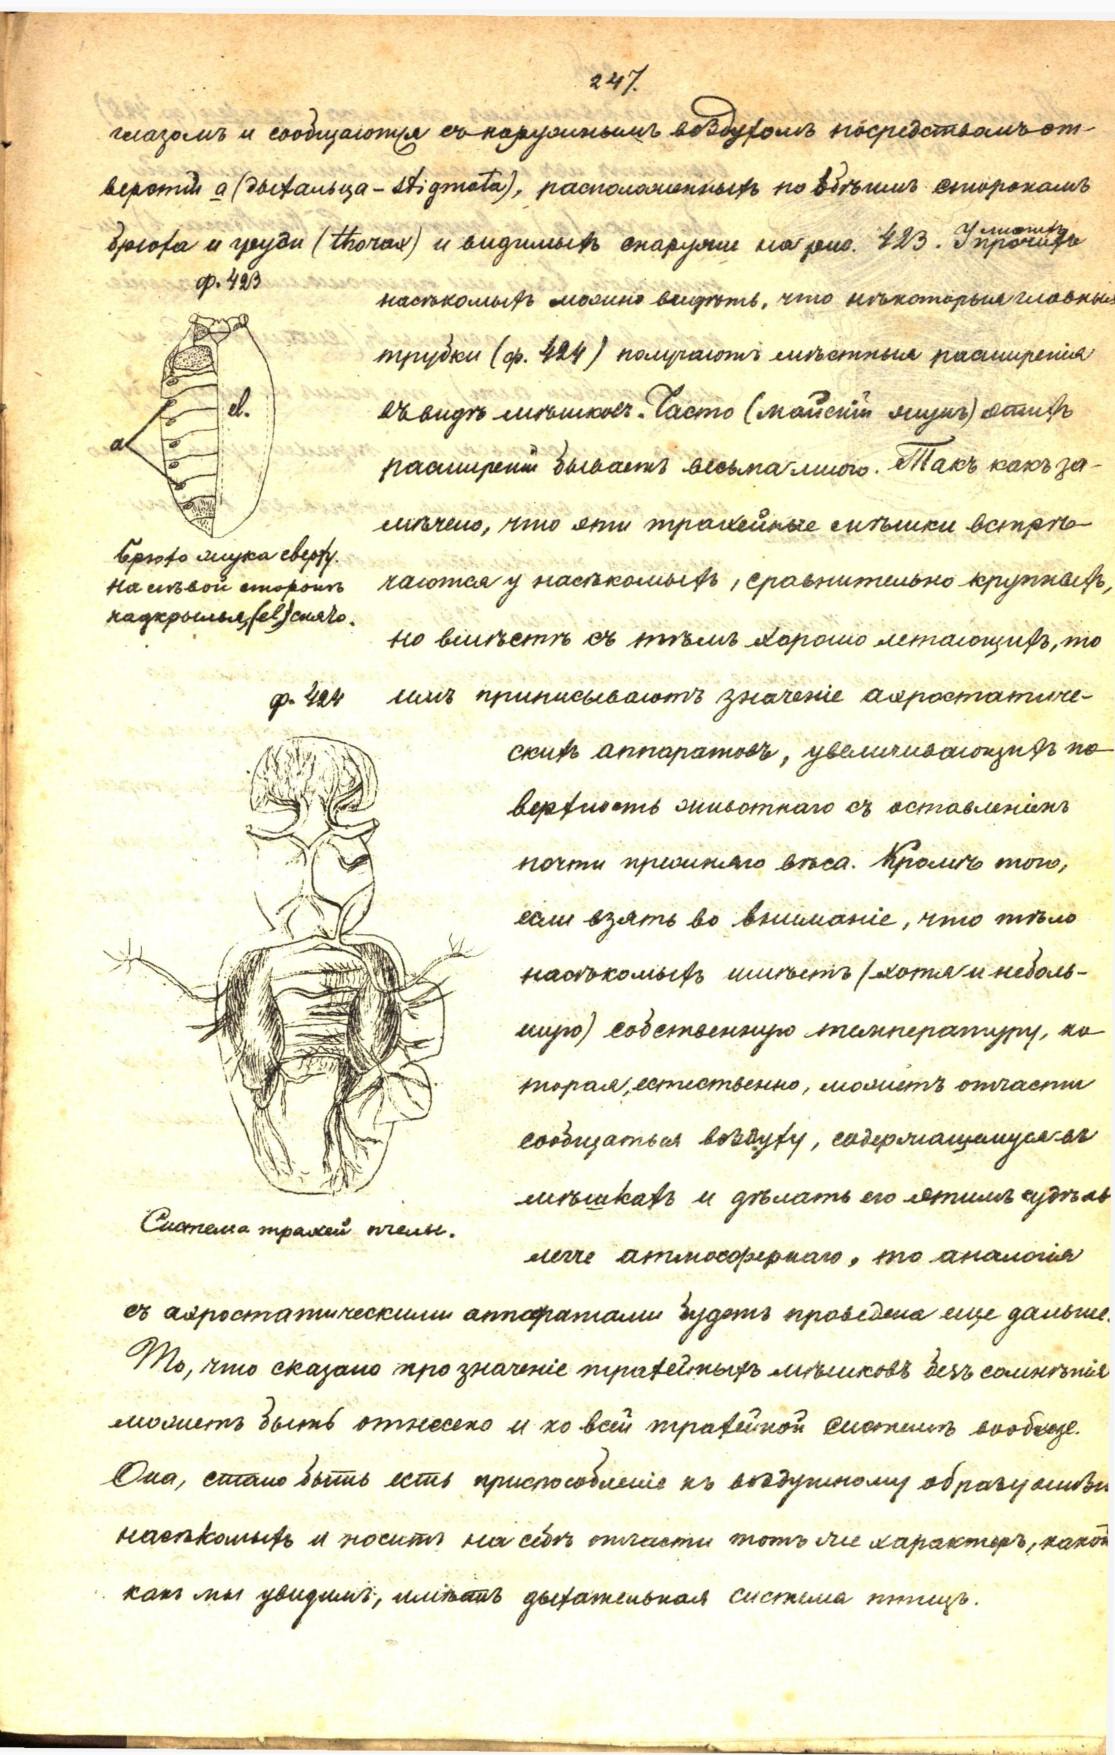 247.
глазомъ и сообщаются съ наружнымъ воздухомъ посредствомъ от-
верстій а (дыхальца - stigmata), расположенныхъ по обѣимъ сторонамъ
брюха и груди (thorax) и видимыхъ снаружи на рис. 423. У многихъ
ф. 423
насѣкомыхъ можно видѣть, что нѣкоторыя главныя
трубки (ф. 424) получаютъ мѣстныя расширенія
въ видѣ мѣшковъ. Часто (майскій жукъ) этихъ
расширеній бываетъ весьма много. Такъ какъ за-
мѣчено, что эти трахейные мѣшки встрѣ-
чаются у насѣкомыхъ, сравнительно крупныхъ,
но вмѣстѣ съ тѣмъ хорошо летающихъ, то
имъ приписываютъ значеніе аэростатиче-
скихъ аппаратовъ, увеличивающихъ по-
верхность животнаго съ оставленіемъ
почти прежняго вѣса. Кромѣ того,
если взять во вниманіе, что тѣло
насѣкомыхъ имѣетъ (хотя и неболь-
шую) собственную температуру, ко-
торая, естественно, можетъ отчасти
сообщаться воздуху, содержащемуся въ
мѣшкахъ и дѣлать его этимъ
легче атмосфернаго, то аналогія
съ аэростатическими аппаратами будетъ проведена еще дальше.
То, что сказано про значеніе трахейныхъ мѣшковъ безъ сомнѣнія
можетъ быть отнесено и ко всей трахейной системѣ вообще.
Она, стало быть есть приспособленіе къ воздушному образу жизни
насѣкомыхъ и носитъ на себѣ отчасти тотъ же характеръ, какой
какъ мы увидимъ, имѣетъ дыхательная система птицъ.
el.
а
Брюхо жука сверху.
На лѣвой сторонѣ
надкрылья (el) снято.
ф. 424
Система трахей пчелы.